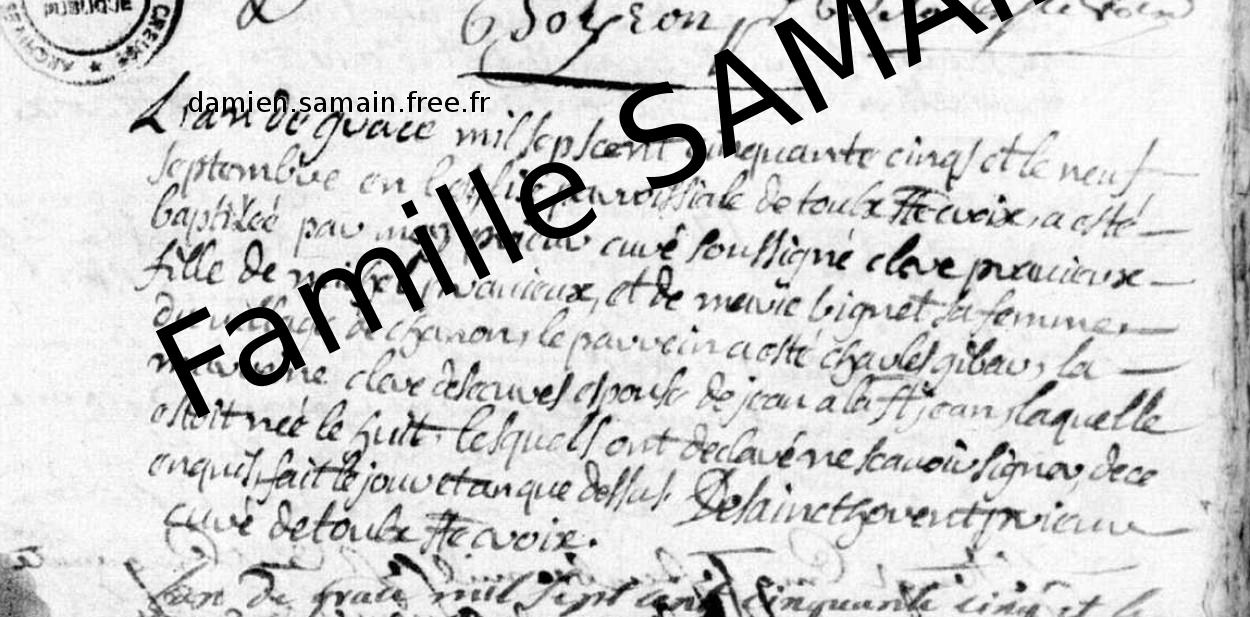 PUBLIQUE
ARCHIVES CREUSE
damien.samain.free.fr
Famille SAMAIN
L'an de grace mil sept cent cinquante cinq, et le neuf
septembre en l'eglise parroissiale de toulx Ste croix, a esté
baptisée par moy prieur curé soussigné cleve pravieux
fille de michel pravieux, et de marie bignet sa femme
du village de chanons, le parrein a esté charles gibeau, la
marenne cleve descuves espouse de jean a la St jean, laquelle
estoit née le huit, lesquels ont declaré ne scavoir signer, de ce
enquis, fait le jour et an que dessus. De saincthorent prieur
curé de toulx Ste croix.
l'an de grace mil sept cent cinquante cinq et le